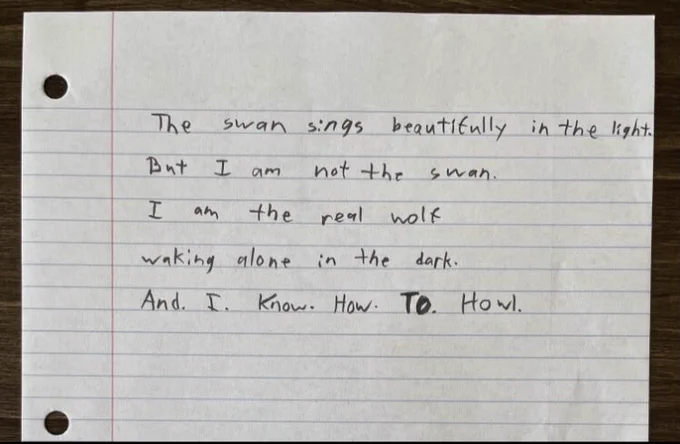 The swan sings beautifully in the light.
But I am not the swan.
I am the real wolf
waking alone in the dark.
And. I. Know. How. TO. Howl.